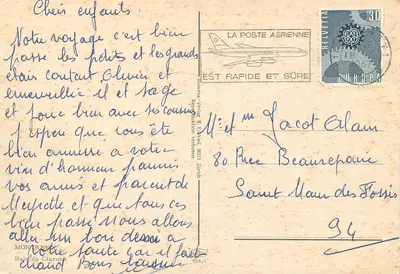 Chers enfants.
Notre voyage c'est bien
passé les petits et les grands
étais contant Olivier et
emerveillée il et sage
et joue bien avec ses cousins
J espere que vous ête
bien amusser a votre
vin d'honneur parmis
vos amis et parent de
et que tous ces
bien passé nous allons
aller un bon
votre santé car il fait
chaud Bons
LA POSTE AÉRIENNE
EST RAPIDE ET SÛRE
HELVETIA
30
EUROPA
M. et Mme Jacot Alain
80 Rue Beaurepaire
Saint Maur des Fossés
94